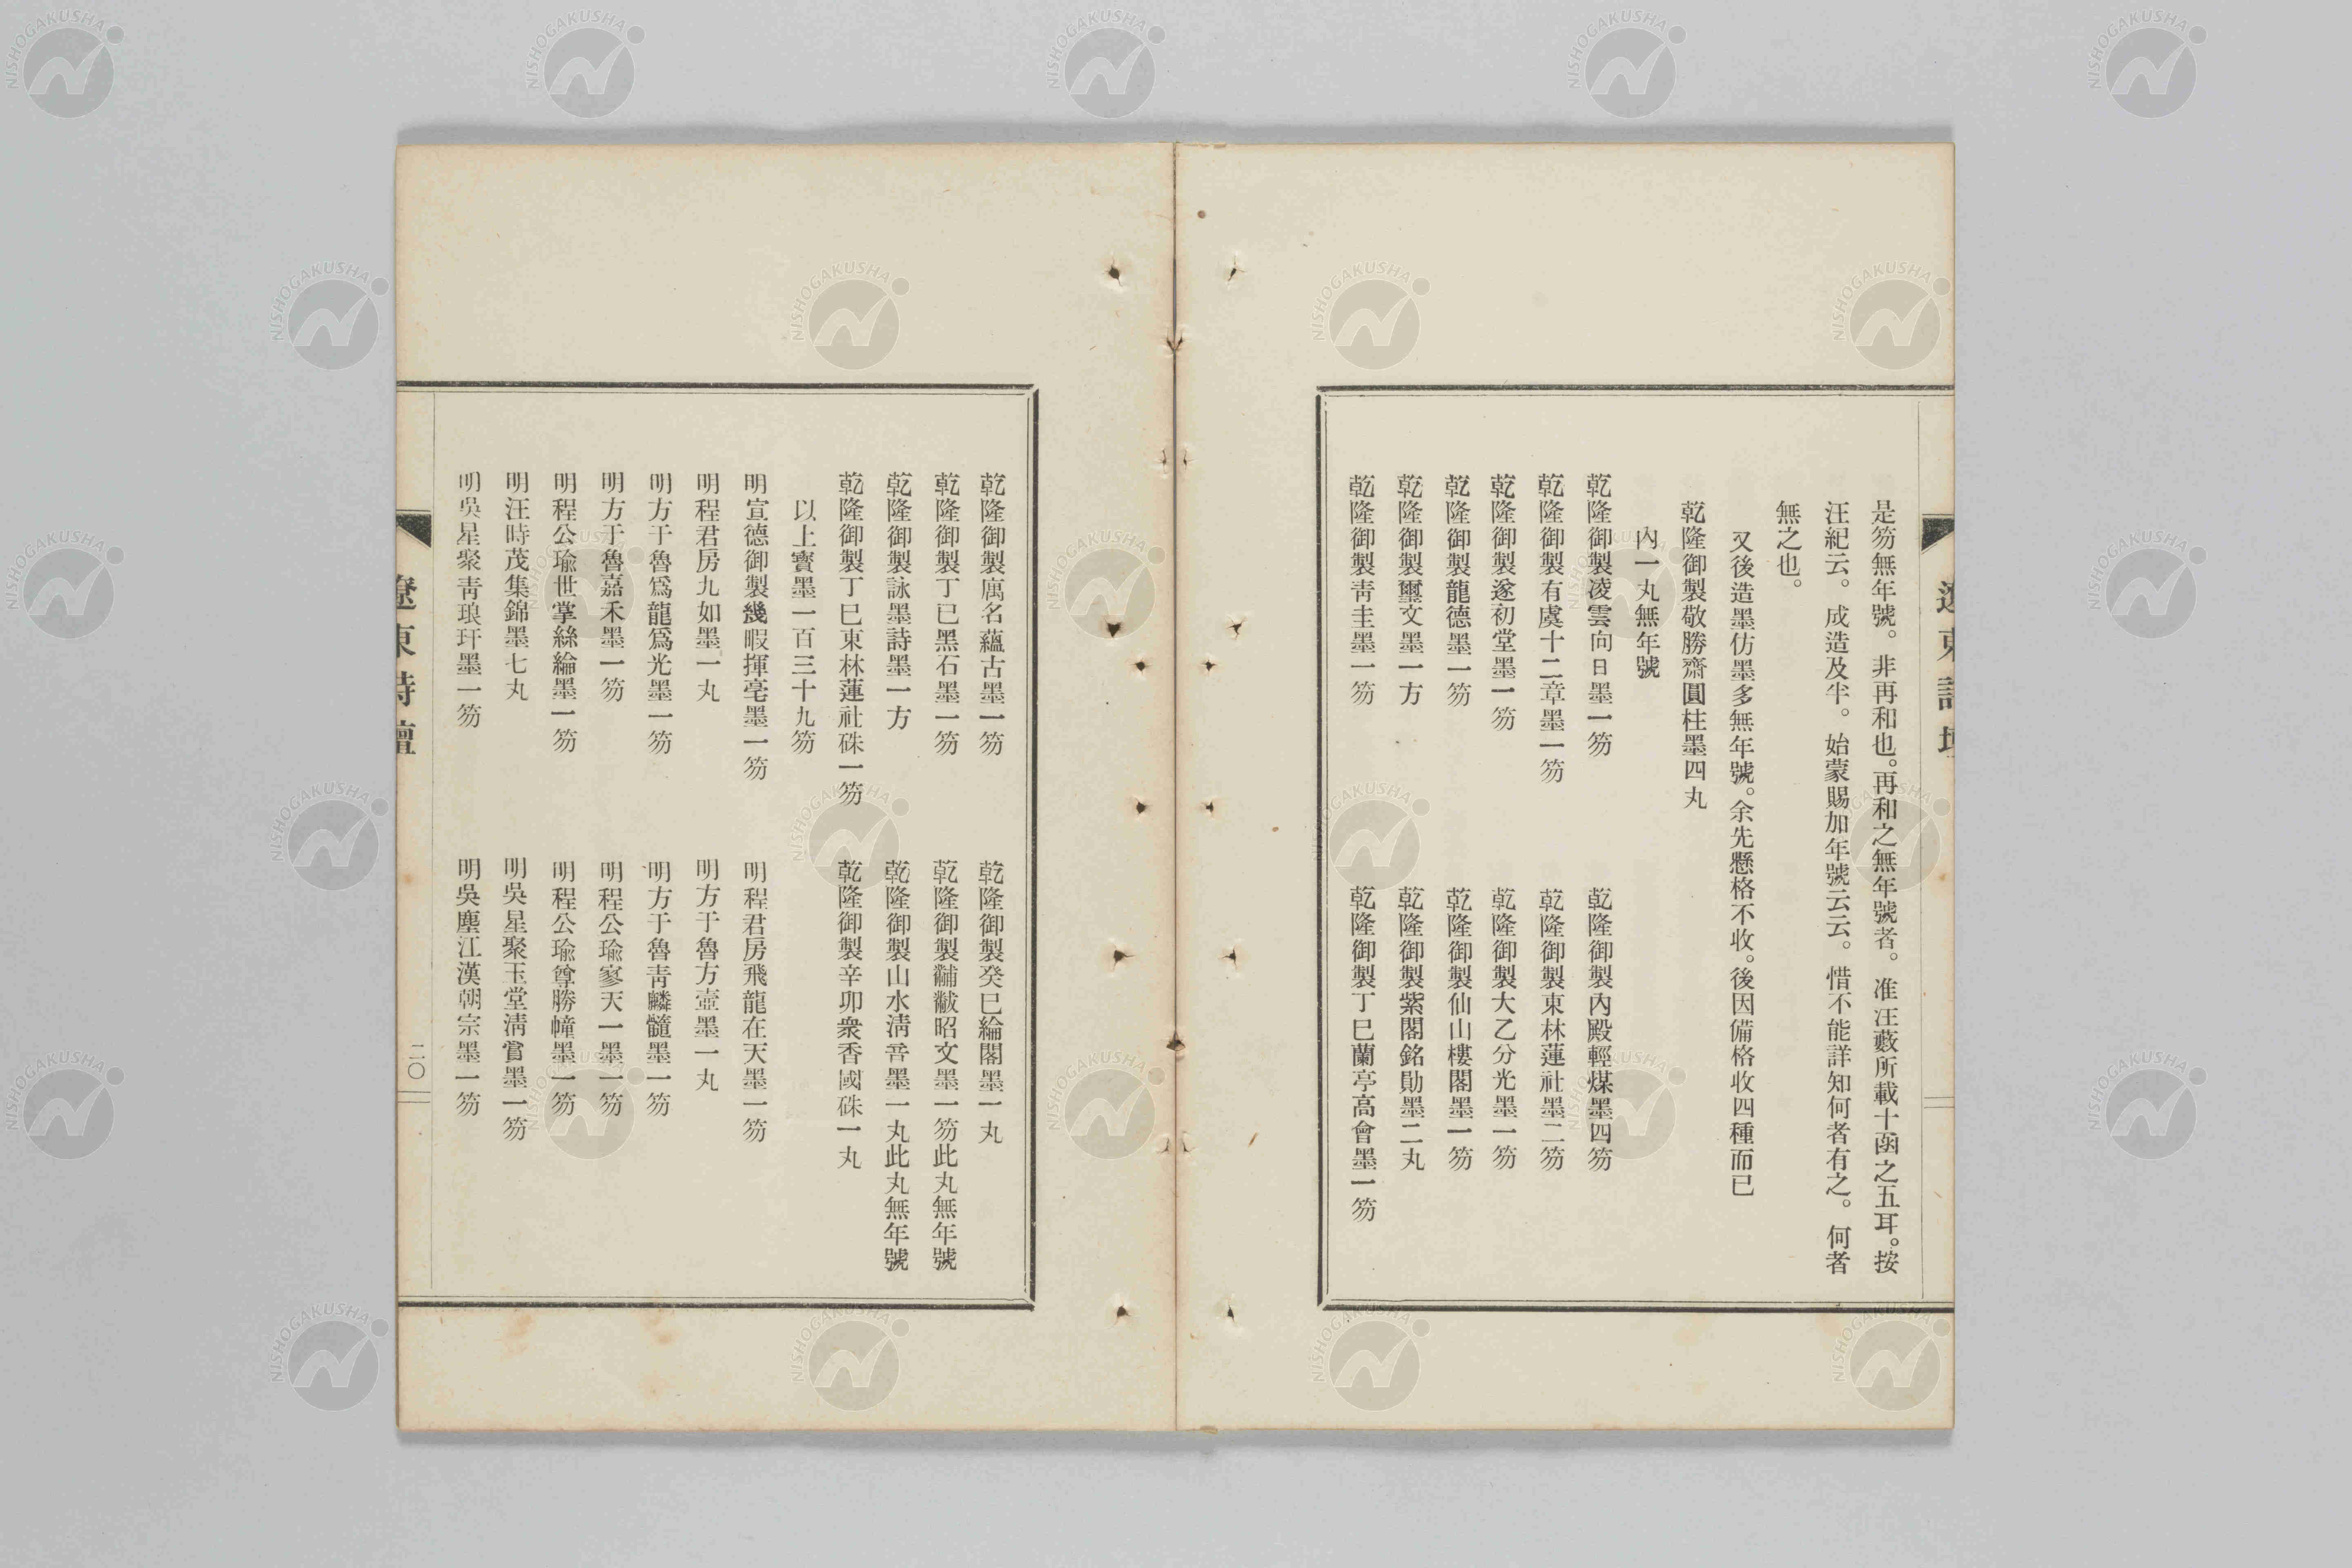 是笏無年號。非再和也。再和之無年號者。准汪蘞所載十函之五耳。按
汪紀云。成造及半。始蒙賜加年號云云。惜不能詳知何者有之。何者
無之也。
又後造墨仿墨多無年號。余先懸格不收。後因備格收四種而已
乾隆御製敬勝齋圓柱墨四丸
內一丸無年號
乾隆御製凌雲向日墨一笏
乾隆御製內殿輕煤墨四笏
乾隆御製有虞十二章墨一笏
乾隆御製東林蓮社墨二笏
乾隆御製遂初堂墨一笏
乾隆御製大乙分光墨一笏
乾隆御製龍德墨一笏
乾隆御製仙山樓閣墨一笏
乾隆御製璽文墨一方
乾隆御製紫閣銘勛墨二丸
乾隆御製靑圭墨一笏
乾隆御製丁巳蘭亭高會墨一笏
乾隆御製厲名蘊古墨一笏
乾隆御製癸巳綸閣墨一丸
乾隆御製丁巳黑石墨一笏
乾隆御製黼黻昭文墨一笏此丸無年號
乾隆御製詠墨詩墨一方
乾隆御製山水淸音墨一丸此丸無年號
乾隆御製丁巳東林蓮社硃一笏
乾隆御製辛卯衆香國硃一丸
以上寶墨一百三十九笏
明宣德御製幾暇揮毫墨一笏
明程君房飛龍在天墨一笏
明程君房九如墨一丸
明方于魯方壺墨一丸
明方于魯爲龍爲光墨一笏
明方于魯靑麟髓墨一笏
明方于魯嘉禾墨一笏
明程公瑜寥天一墨一笏
明程公瑜世掌絲綸墨一笏
明程公瑜尊勝幢墨一笏
明汪時茂集錦墨七丸
明吳星聚玉堂淸賞墨一笏
明吳星聚靑琅玕墨一笏
明吳塵江漢朝宗墨一笏
遼東詩壇
二〇